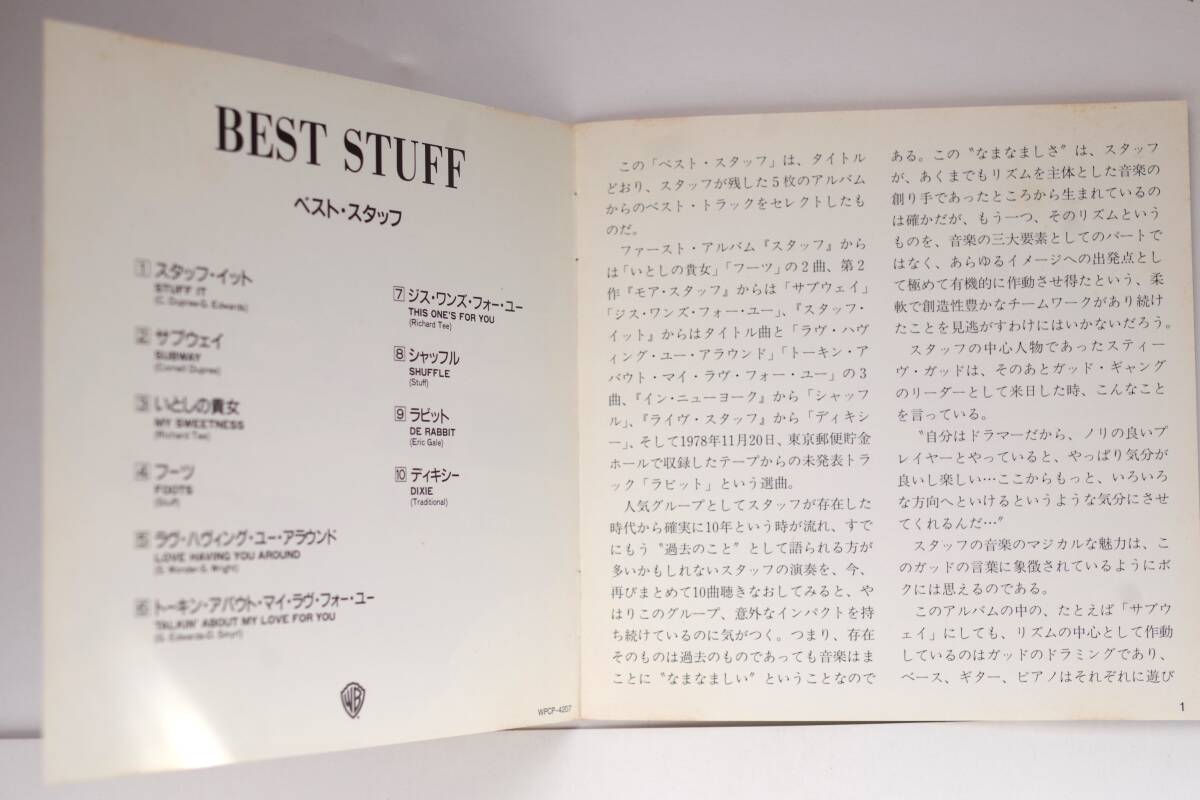 BEST STUFF
ベスト・スタッフ
1 スタッフ・イット
STUFF IT
(C. Dupree-G. Edwards)
2 サブウェイ
SUBWAY
(Cornell Dupree)
3 いとしの貴女
MY SWEETNESS
(Richard Tee)
4 フーツ
FOOTS
(Stuff)
5 ラヴ・ハヴィング・ユー・アラウンド
LOVE HAVING YOU AROUND
(S. Wonder-S. Wright)
6 トーキン・アバウト・マイ・ラヴ・フォー・ユー
TALKIN' ABOUT MY LOVE FOR YOU
(G. Edwards-D. Smyrl)
7 ジス・ワンズ・フォー・ユー
THIS ONE'S FOR YOU
(Richard Tee)
8 シャッフル
SHUFFLE
(Stuff)
9 ラビット
DE RABBIT
(Eric Gale)
10 ディキシー
DIXIE
(Traditional)
WB
WPCP-4207
この「ベスト・スタッフ」は、タイトル
どおり、スタッフが残した5枚のアルバム
からのベスト・トラックをセレクトしたも
のだ。
ファースト・アルバム『スタッフ』から
は「いとしの貴女」「フーツ」の2曲、第2
作『モア・スタッフ』からは「サブウェイ」
「ジス・ワンズ・フォー・ユー」、『スタッフ・
イット』からはタイトル曲と「ラヴ・ハヴ
ィング・ユー・アラウンド」「トーキン・ア
バウト・マイ・ラヴ・フォー・ユー」の3
曲、『イン・ニューヨーク』から「シャッフ
ル」、『ライヴ・スタッフ』から「ディキシ
ー」、そして1978年11月20日、東京郵便貯金
ホールで収録したテープからの未発表トラ
ック「ラビット」という選曲。
人気グループとしてスタッフが存在した
時代から確実に10年という時が流れ、すで
にもう〝過去のこと〟として語られる方が
多いかもしれないスタッフの演奏を、今、
再びまとめて10曲聴きなおしてみると、や
はりこのグループ、意外なインパクトを持
ち続けているのに気がつく。つまり、存在
そのものは過去のものであっても音楽はま
ことに〝なまなましい〟ということなので
ある。この〝なまなましさ〟は、スタッフ
が、あくまでもリズムを主体とした音楽の
創り手であったところから生まれているの
は確かだが、もう一つ、そのリズムという
ものを、音楽の三大要素としてのパートで
はなく、あらゆるイメージへの出発点とし
て極めて有機的に作動させ得たという、柔
軟で創造性豊かなチームワークがあり続け
たことを見逃がすわけにはいかないだろう。
スタッフの中心人物であったスティー
ヴ・ガッドは、そのあとガッド・ギャング
のリーダーとして来日した時、こんなこと
を言っている。
〝自分はドラマーだから、ノリの良いプ
レイヤーとやっていると、やっぱり気分が
良いし楽しい…ここからもっと、いろいろ
な方向へといけるというような気分にさせ
てくれるんだ…〟
スタッフの音楽のマジカルな魅力は、こ
のガッドの言葉に象徴されているようにボ
クには思えるのである。
このアルバムの中の、たとえば「サブウ
ェイ」にしても、リズムの中心として作動
しているのはガッドのドラミングであり、
ベース、ギター、ピアノはそれぞれに遊び
1